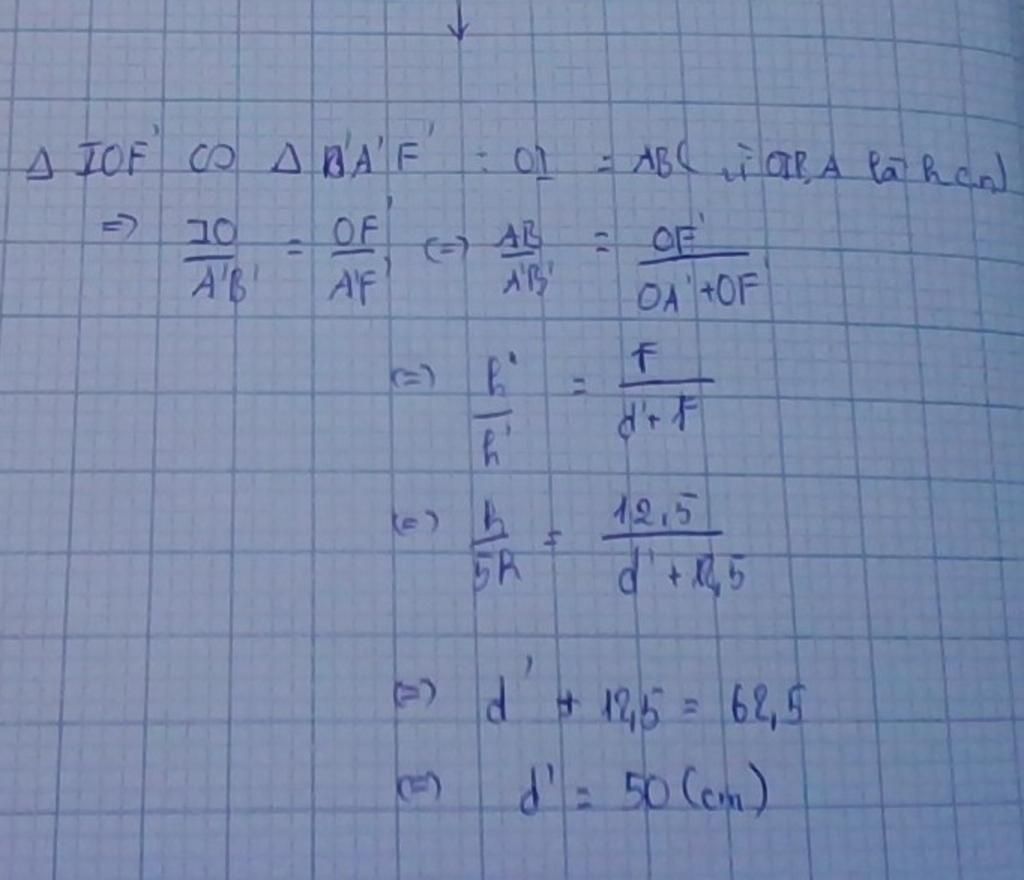 Δ IOF' ∽ Δ B'A'F' : OI = AB ( vì OIBA là hcn)
=> IO/A'B' = OF'/A'F' (=) AB/A'B' = OF'/OA'+OF'
(=) h/h' = F/d'+F
(=) h/5h = 12,5/d'+12,5
(=) d' + 12,5 = 62,5
(=) d' = 50 (cm)